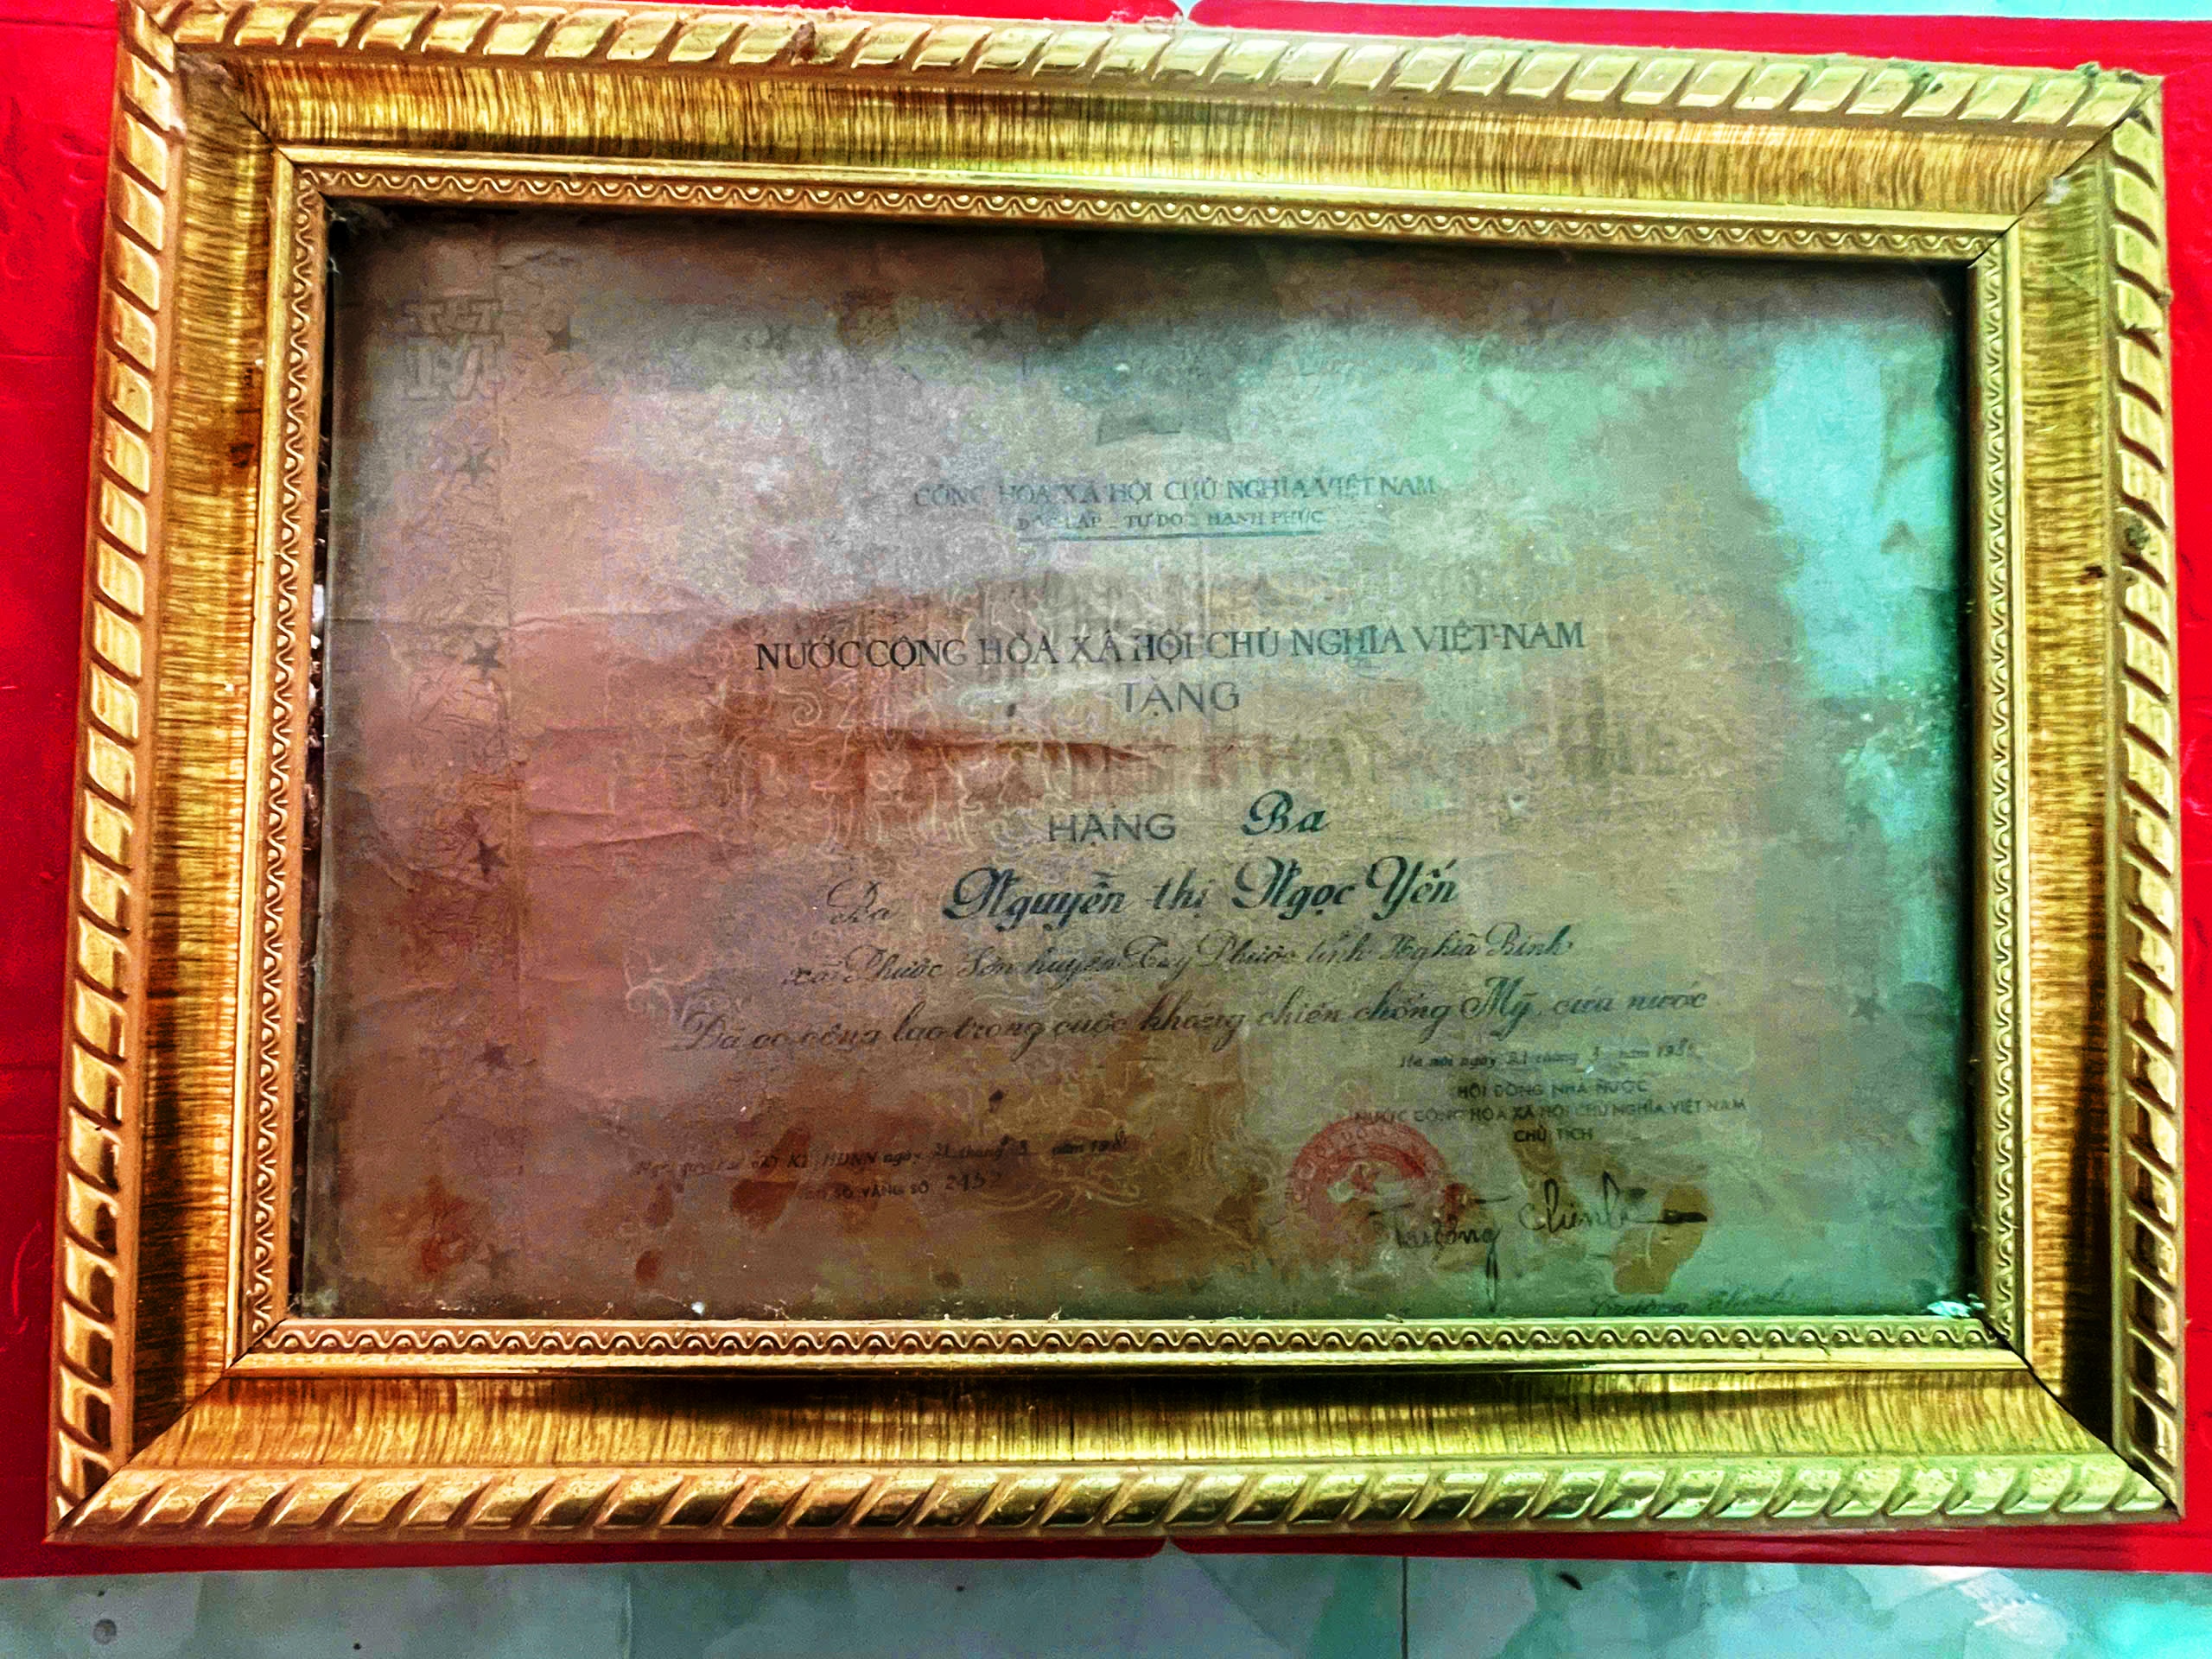 CỘNG HÒA XÃ HỘI CHỦ NGHĨA VIỆT NAM
ĐỘC LẬP _ TỰ DO _ HẠNH PHÚC
NƯỚC CỘNG HÒA XÃ HỘI CHỦ NGHĨA VIỆT-NAM
TẶNG
HẠNG Ba
Bà Nguyễn thị Ngọc Yến
xã Phước Sơn huyện Tuy Phước tỉnh Nghĩa Bình
Đã có công lao trong cuộc kháng chiến chống Mỹ, cứu nước
Hà nội ngày 21 tháng 3 năm
HỘI ĐỒNG NHÀ NƯỚC
NƯỚC CỘNG HÒA XÃ HỘI CHỦ NGHĨA VIỆT NAM
CHỦ TỊCH
HĐNN ngày 21 tháng 3 năm
SỔ VÀNG SỐ
Trường Chinh
Trường Chinh